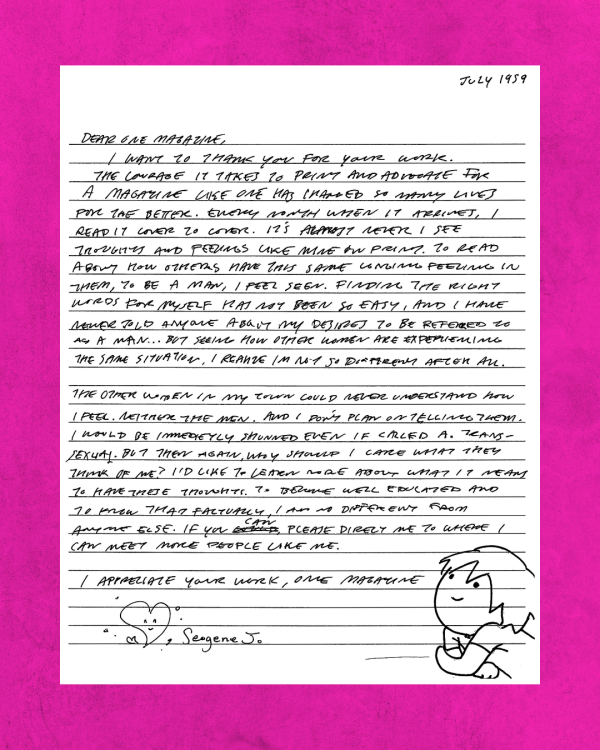 JULY 1959
DEAR ONE MAGAZINE,
I WANT TO THANK YOU FOR YOUR WORK.
THE COURAGE IT TAKES TO PRINT AND ADVOCATE FOR
A MAGAZINE LIKE ONE HAS CHANGED SO MANY LIVES
FOR THE BETTER. EVERY MONTH WHEN IT ARRIVES, I
READ IT COVER TO COVER. IT'S ALMOST NEVER I SEE
THOUGHTS AND FEELINGS LIKE MINE ON PRINT. TO READ
ABOUT HOW OTHERS HAVE THIS SAME LONGING FEELING IN
THEM, TO BE A MAN, I FEEL SEEN. FINDING THE RIGHT
WORDS FOR MYSELF HAS NOT BEEN SO EASY, AND I HAVE
NEVER TOLD ANYONE ABOUT MY DESIRES TO BE REFERRED TO
AS A MAN... BUT SEEING HOW OTHER WOMEN ARE EXPERIENCING
THE SAME SITUATION, I REALIZE IM NOT SO DIFFERENT AFTER ALL.
THE OTHER WOMEN IN MY TOWN COULD NEVER UNDERSTAND HOW
I FEEL. NEITHER THE MEN. AND I DON'T PLAN ON TELLING THEM.
I WOULD BE IMMEDIETLY SHUNNED EVEN IF CALLED A TRANS-
SEXUAL. BUT THEN AGAIN, WHY SHOULD I CARE WHAT THEY
THINK OF ME? I'D LIKE TO LEARN MORE ABOUT WHAT IT MEANS
TO HAVE THESE THOUGHTS. TO BECOME WELL EDUCATED AND
TO KNOW THAT FACTUALLY, I AM NO DIFFERENT FROM
ANYONE ELSE. IF YOU CAN, PLEASE DIRECT ME TO WHERE I
CAN MEET MORE PEOPLE LIKE ME.
I APPRECIATE YOUR WORK, ONE MAGAZINE
, Seogene J.